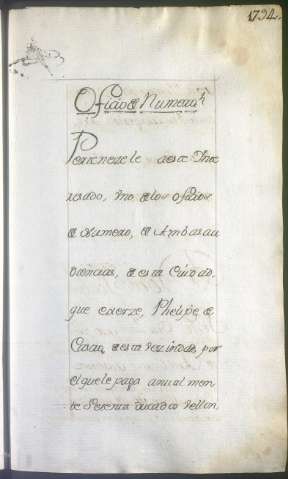 1794.
Oficio de Numero.
Pertenezele a este Inte
resado, vno de los ofizios
de Numero, de Ambas au
diencias, de esta Ciudad,
que exerze, Phelipe de
de esta Vezindad, por
el que le paga anualmen
te Sesenta ducados vellon,